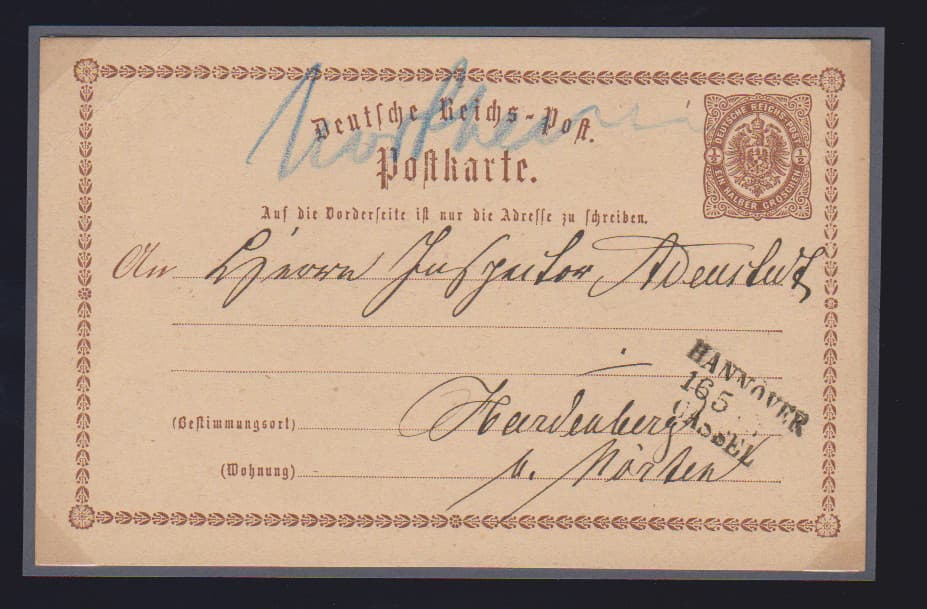 Northeim
Deutsche Reichs-Post.
Postkarte.
DEUTSCHE REICHS-POST
½ ½
EIN HALBER GROSCHEN
Auf die Vorderseite ist nur die Adresse zu schreiben.
An Herrn Inspector Adenstedt
HANNOVER
16 5
CASSEL
(Bestimmungsort) Hardenberg
(Wohnung) b. Nörten